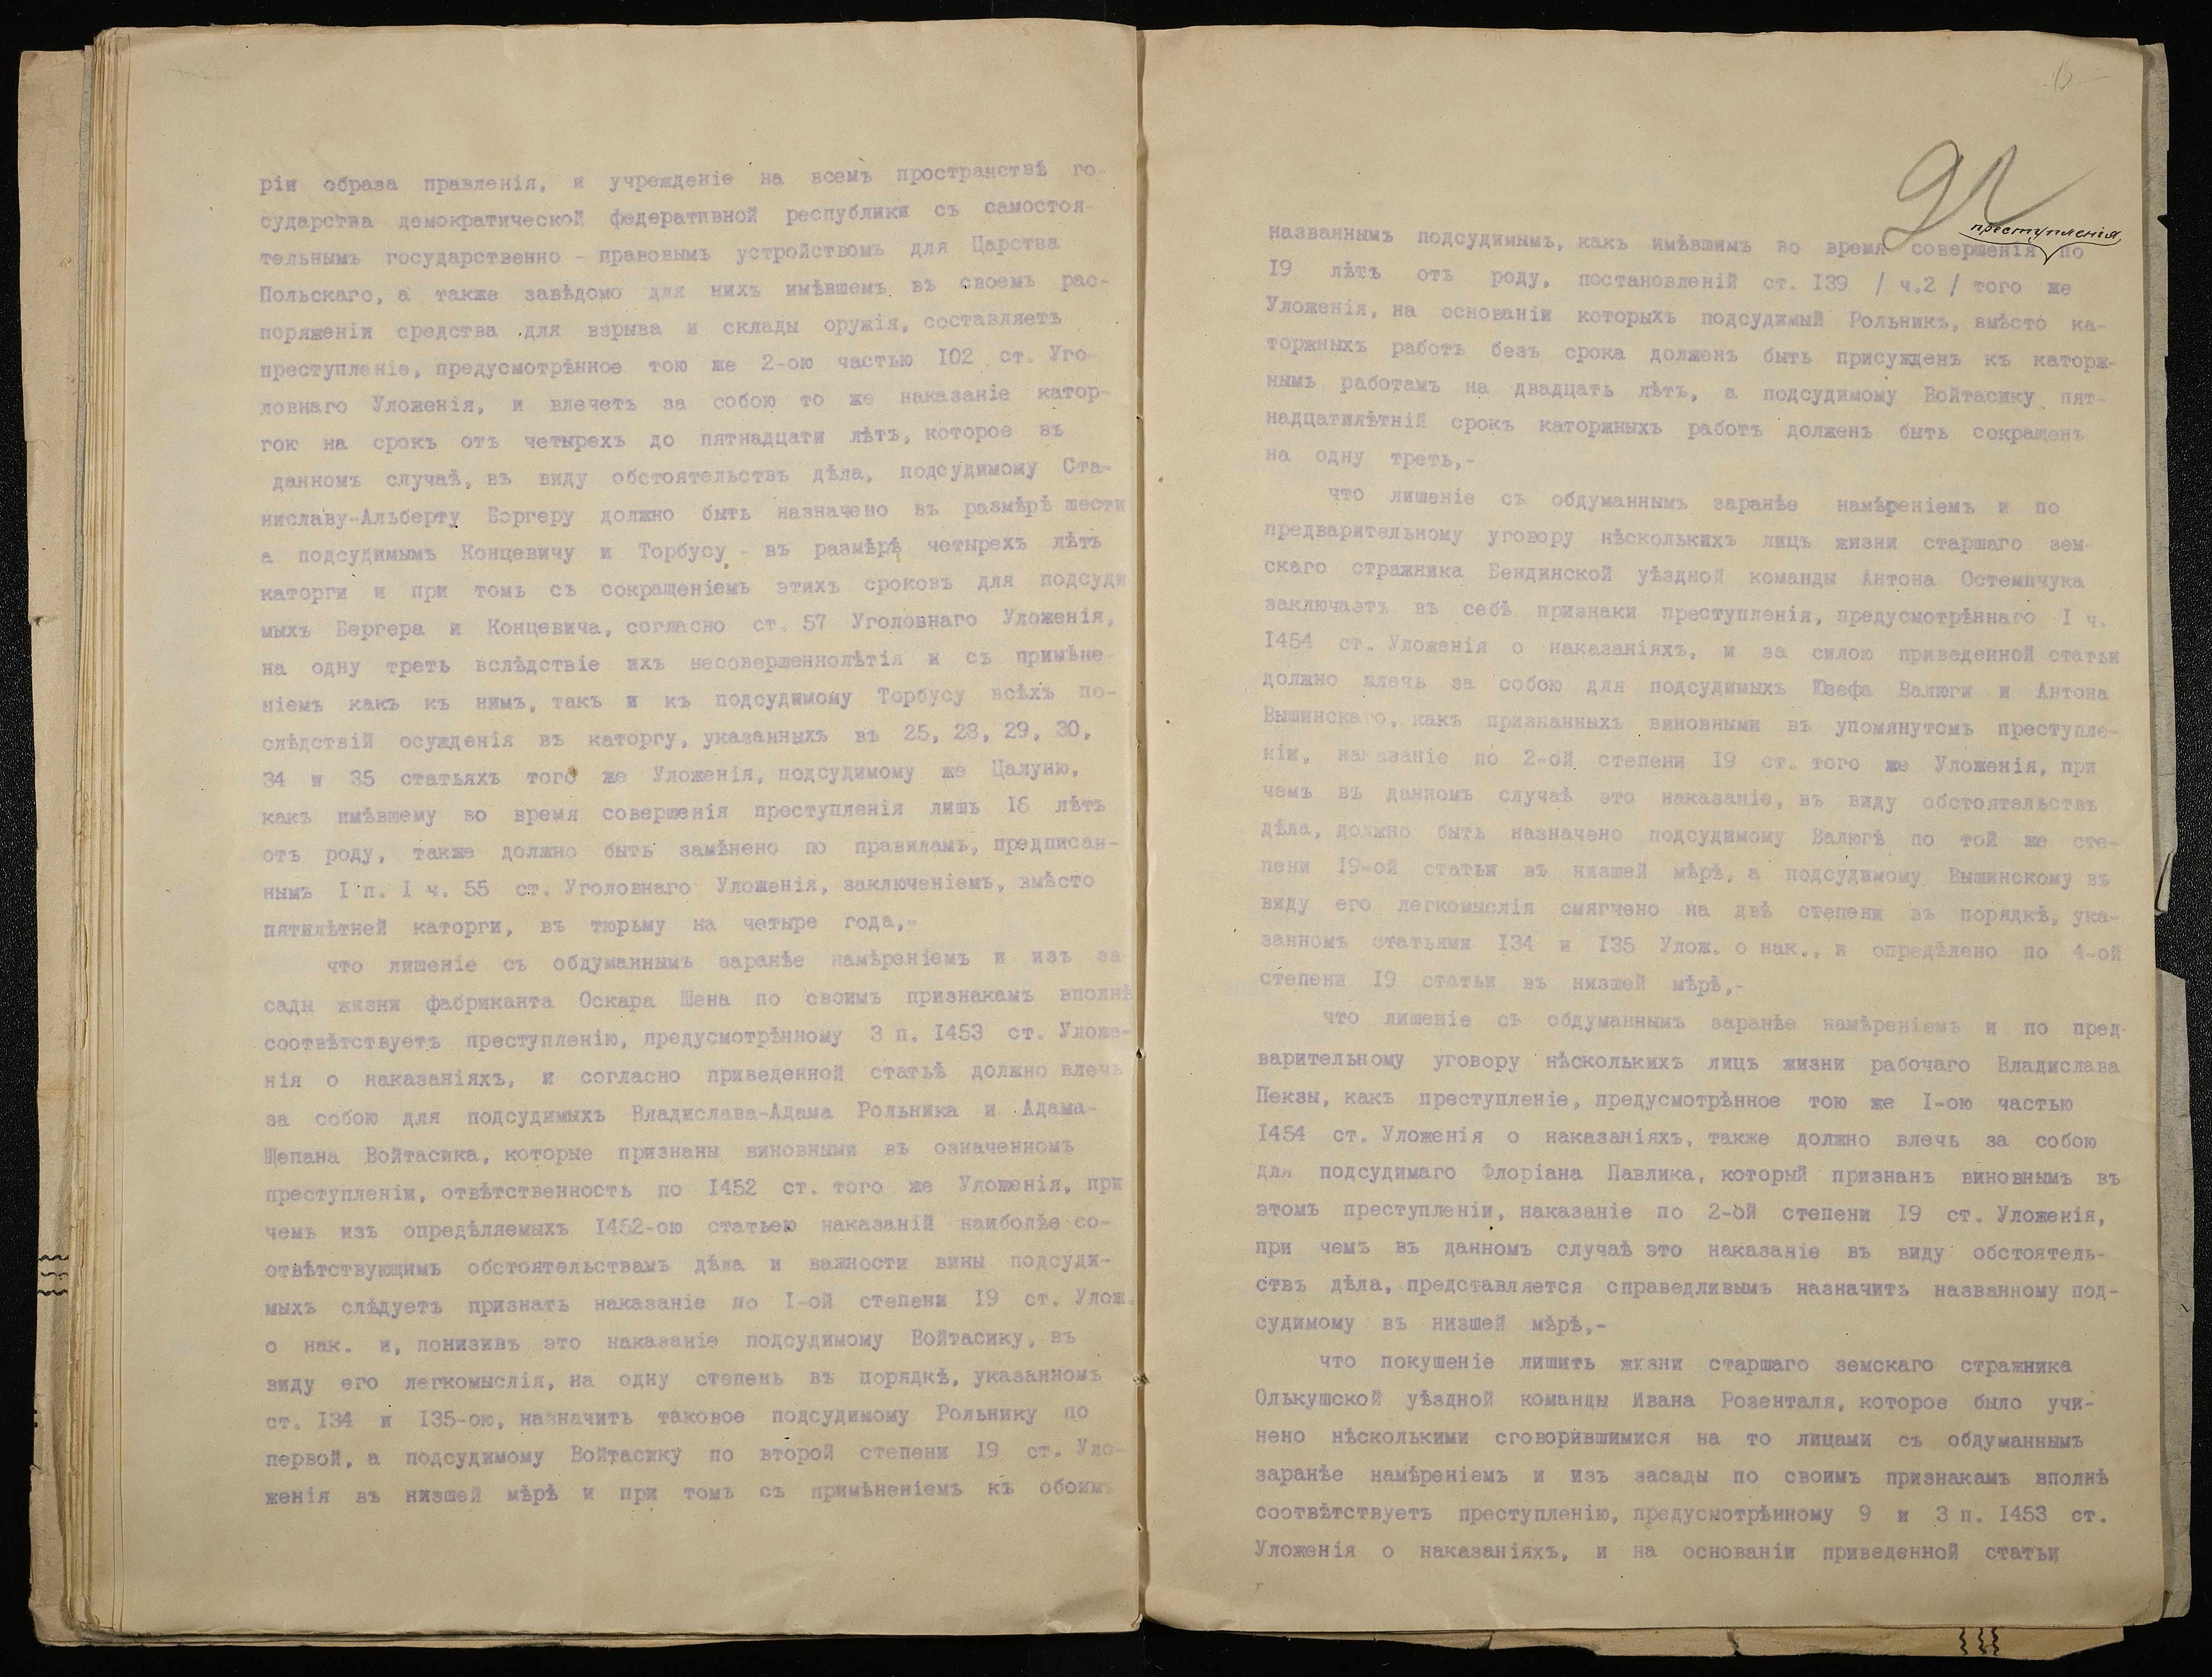 ріи образа правленія, и учрежденіе на всемъ пространствѣ го-
сударства демократической федеративной республики съ самостоя-
тельнымъ государственно - правовымъ устройствомъ для Царства
Польскаго, а также завѣдомо для нихъ имѣвшемъ въ своемъ рас-
поряженіи средства для взрыва и склады оружія, составляетъ
преступленіе, предусмотрѣнное тою же 2-ою частью I02 ст. Уго-
ловнаго Уложенія, и влечетъ за собою то же наказаніе катор-
гою на срокъ отъ четырехъ до пятнадцати лѣтъ, которое въ
данномъ случаѣ, въ виду обстоятельствъ дѣла, подсудимому Ста-
ниславу-Альберту Бэргеру должно быть назначено въ размѣрѣ шести
а подсудимымъ Концевичу и Торбусу - въ размѣрѣ четырехъ лѣтъ
каторги и при томъ съ сокращеніемъ этихъ сроковъ для подсуди
мыхъ Бергера и Концевича, согласно ст. 57 Уголовнаго Уложенія,
на одну треть вслѣдствіе ихъ несовершеннолѣтія и съ примѣне-
ніемъ какъ къ нимъ, такъ и къ подсудимому Торбусу всѣхъ по-
слѣдствій осужденія въ каторгу, указанныхъ въ 25, 28, 29, 30,
34 и 35 статьяхъ того же Уложенія, подсудимому же Цалуню,
какъ имѣвшему во время совершенія преступленія лишь I6 лѣтъ
отъ роду, также должно быть замѣнено по правиламъ, предписан-
нымъ I п. I ч. 55 ст. Уголовнаго Уложенія, заключеніемъ, вмѣсто
пятилѣтней каторги, въ тюрьму на четыре года,-
что лишеніе съ обдуманнымъ заранѣе намѣреніемъ и изъ за-
сады жизни фабриканта Оскара Шена по своимъ признакамъ вполнѣ
соотвѣтствуетъ преступленію, предусмотрѣнному 3 п. I453 ст. Уложе-
нія о наказаніяхъ, и согласно приведенной статьѣ должно влечь
за собою для подсудимыхъ Владислава-Адама Рольника и Адама-
Щепана Войтасика, которые признаны виновными въ означенномъ
преступленіи, отвѣтственность по I452 ст. того же Уложенія, при
чемъ изъ опредѣляемыхъ I452-ою статьею наказаній наиболѣе со-
отвѣтствующимъ обстоятельствамъ дѣла и важности вины подсуди-
мыхъ слѣдуетъ признать наказаніе по I-ой степени I9 ст. Улож.
о нак. и, понизивъ это наказаніе подсудимому Войтасику, въ
виду его легкомыслія, на одну степень въ порядкѣ, указанномъ
ст. I34 и I35-ою, назначить таковое подсудимому Рольнику по
первой, а подсудимому Войтасику по второй степени I9 ст. Уло-
женія въ низшей мѣрѣ и при томъ съ примѣненіемъ къ обоимъ
92
преступленія
названнымъ подсудимымъ, какъ имѣвшимъ во время совершенія по
I9 лѣтъ отъ роду, постановленій ст. I39 / ч.2 / того же
Уложенія, на основаніи которыхъ подсудимый Рольникъ, вмѣсто ка-
торжныхъ работъ безъ срока долженъ быть присужденъ къ каторж-
нымъ работамъ на двадцать лѣтъ, а подсудимому Войтасику пят-
надцатилѣтній срокъ каторжныхъ работъ долженъ быть сокращенъ
на одну треть,-
что лишеніе съ обдуманнымъ заранѣе намѣреніемъ и по
предварительному уговору нѣсколькихъ лицъ жизни старшаго зем-
скаго стражника Бендинской уѣздной команды Антона Остемпчука
заключаэтъ въ себѣ признаки преступленія, предусмотрѣннаго I ч.
I454 ст. Уложенія о наказаніяхъ, и за силою приведенной статьи
должно влечь за собою для подсудимыхъ Юзефа Валюги и Антона
Вышинскаго, какъ признанныхъ виновными въ упомянутомъ преступле-
ніи, наказаніе по 2-ой степени I9 ст. того же Уложенія, при
чемъ въ данномъ случаѣ это наказаніе, въ виду обстоятельствъ
дѣла, должно быть назначено подсудимому Валюгѣ по той же сте-
пени I9-ой статьи въ низшей мѣрѣ, а подсудимому Вышинскому въ
виду его легкомыслія смягчено на двѣ степени въ порядкѣ, ука-
занномъ статьями I34 и I35 Улож. о нак., и опредѣлено по 4-ой
степени I9 статьи въ низшей мѣрѣ,-
что лишеніе съ обдуманнымъ заранѣе намѣреніемъ и по пред-
варительному уговору нѣсколькихъ лицъ жизни рабочаго Владислава
Пекзы, какъ преступленіе, предусмотрѣнное тою же I-ою частью
I454 ст. Уложенія о наказаніяхъ, также должно влечь за собою
для подсудимаго Флоріана Павлика, который признанъ виновнымъ въ
этомъ преступленіи, наказаніе по 2-ой степени I9 ст. Уложенія,
при чемъ въ данномъ случаѣ это наказаніе въ виду обстоятель-
ствъ дѣла, представляется справедливымъ назначить названному под-
судимому въ низшей мѣрѣ,-
что покушеніе лишить жизни старшаго земскаго стражника
Олькушской уѣздной команды Ивана Розенталя, которое было учи-
нено нѣсколькими сговорившимися на то лицами съ обдуманнымъ
заранѣе намѣреніемъ и изъ засады по своимъ признакамъ вполнѣ
соотвѣтствуетъ преступленію, предусмотрѣнному 9 и 3 п. I453 ст.
Уложенія о наказаніяхъ, и на основаніи приведенной статьи